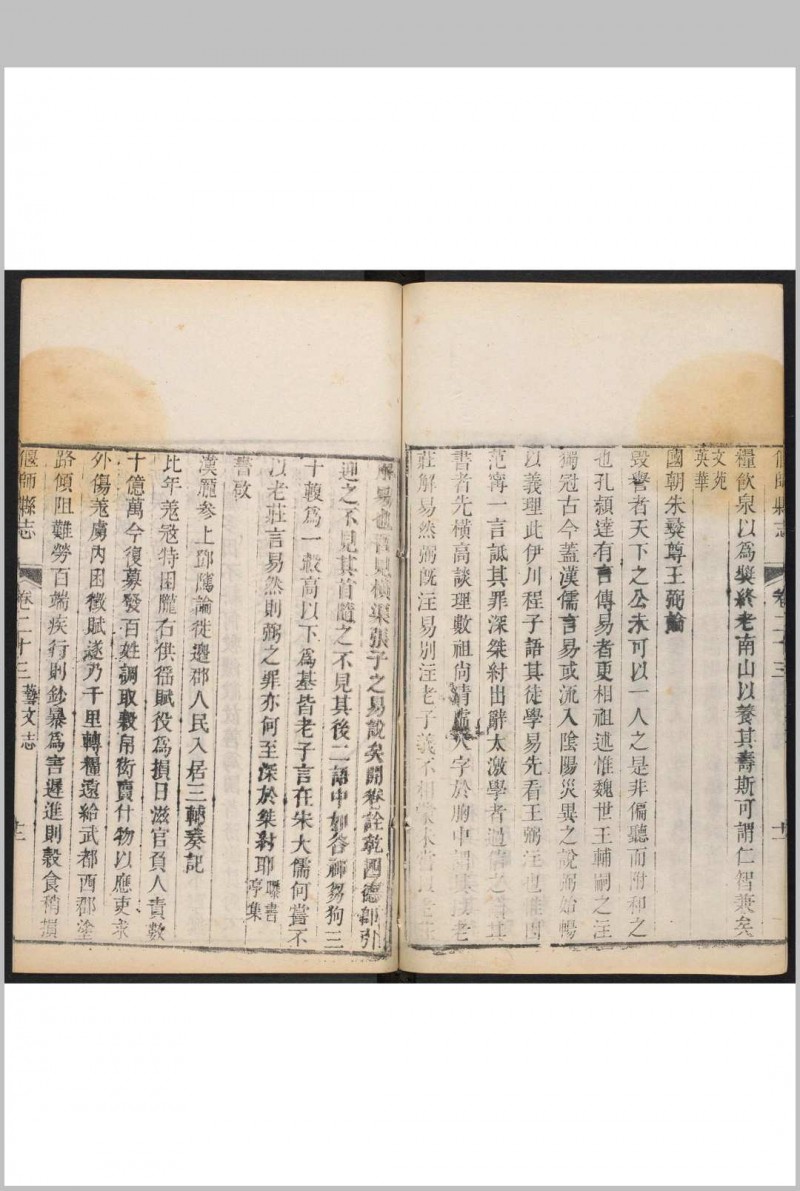 偃師縣志
卷二十三
十一
糧飲泉以為娛終老南山以養其壽斯可謂仁智兼矣
文苑
英華
國朝朱彝尊王弼論
毀譽者天下之公未可以一人之是非偏聽而附和之
也孔頴達有言傳易者更相祖述惟魏世王輔嗣之注
獨冠古今蓋漢儒言易或流入陰陽災異之說弼始暢
以義理此伊川程子語其徒學易先看王弼注也惟因
范甯一言詆其罪深桀紂出辭太激學者過
書者先橫高談理數祖尚清虛八字於胸中謂其以老
莊解易然弼旣注易別注老子義不相
解易也吾見橫渠張子之易說矣開卷詮乾四德卽引
迎之不見其首隨之不見其後二語中如谷神芻狗三
十輻為一轂高以下為基皆老子言在朱大儒何嘗不
以老莊言易然則弼之罪亦何至深於桀紂耶
曝書
亭集
書歟
漢龐參上鄧隲論徙邊郡人民入居三輔奏記
比年羌寇特困隴右供徭賦役為損日滋官負人責數
十億萬今復募發百姓調取穀帛衒賣什物以應吏求
外傷羌虜內困徵賦遂乃千里轉糧遠給武都西郡塗
路傾阻難勞百端疾行則鈔暴為害遲進則穀食稍損
偃師縣志
卷二十三
藝文志
十二